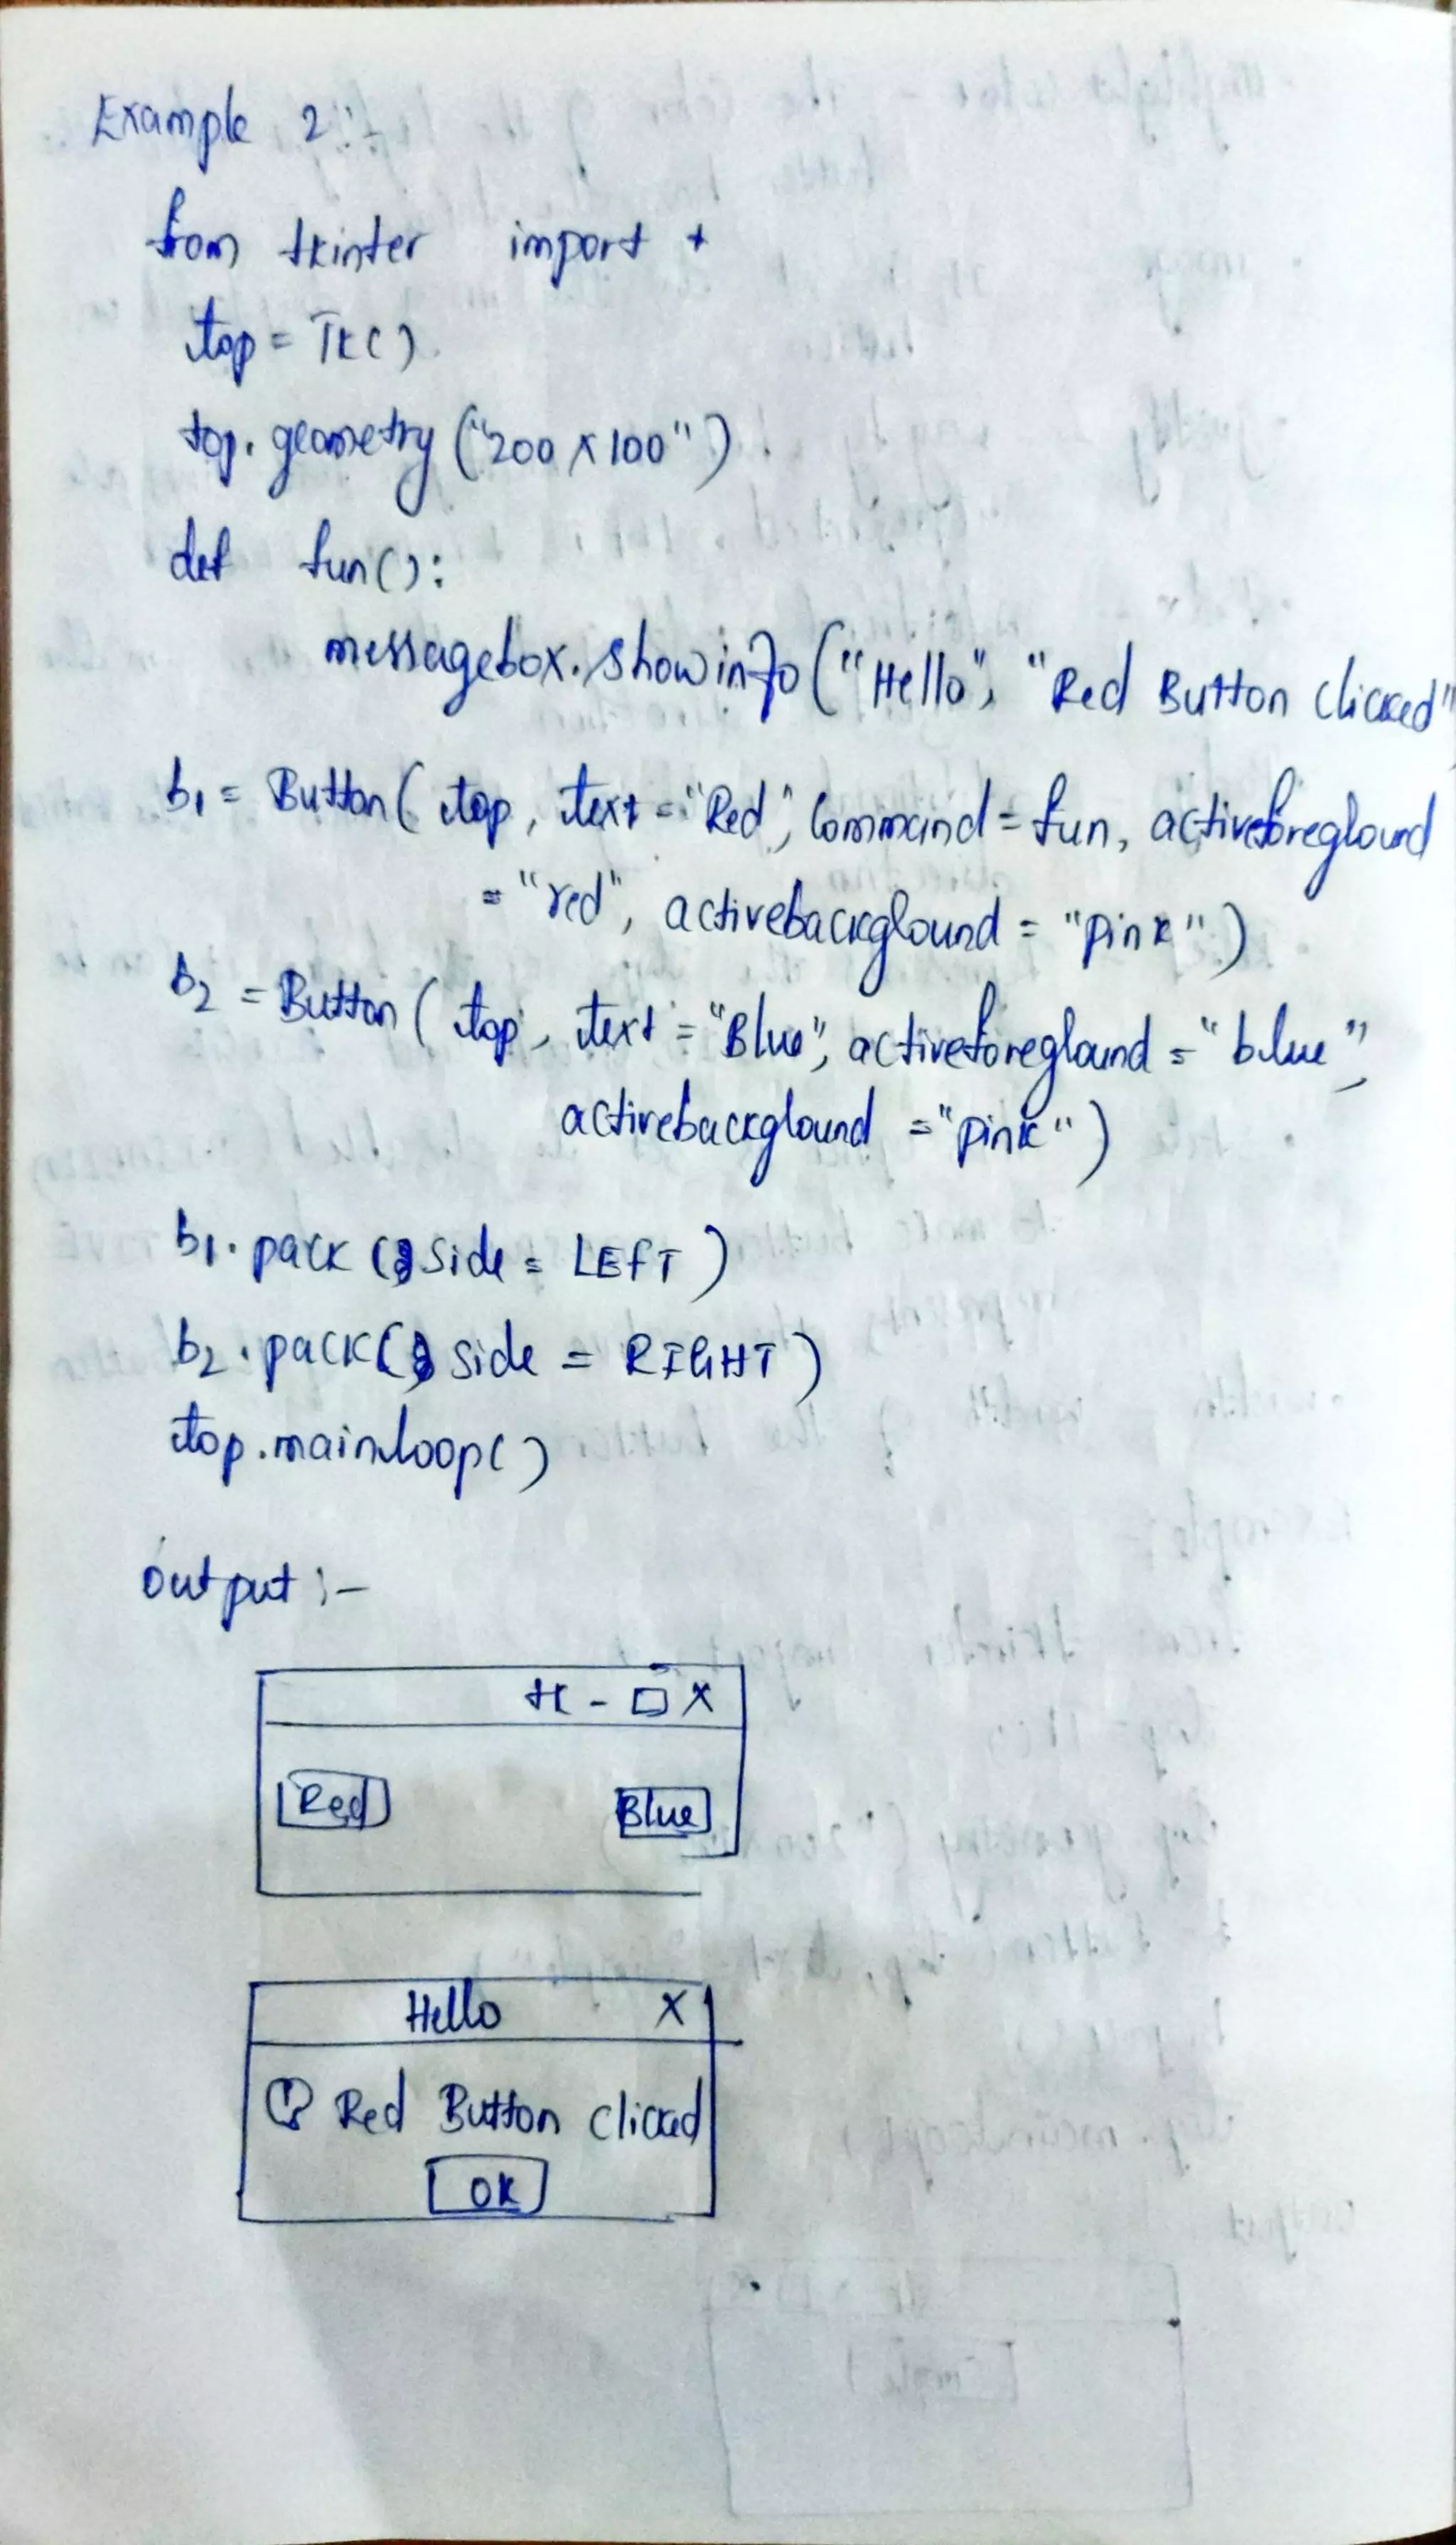 Example 2:
from tkinter import *
top = Tk()
top.geometry("200x100")
def fun():
messagebox.showinfo("Hello", "Red Button clicked"
b1 = Button(top, text="Red", command=fun, activeforeglound
= "red", activebackglound = "pink")
b2 = Button(top, text = "Blue", activeforeglound = "blue",
activebackglound = "pink")
b1.pack(side = LEFT)
b2.pack(side = RIGHT)
top.mainloop()
output :-
tk - □ X
Red Blue
Hello X
! Red Button clicked
OK